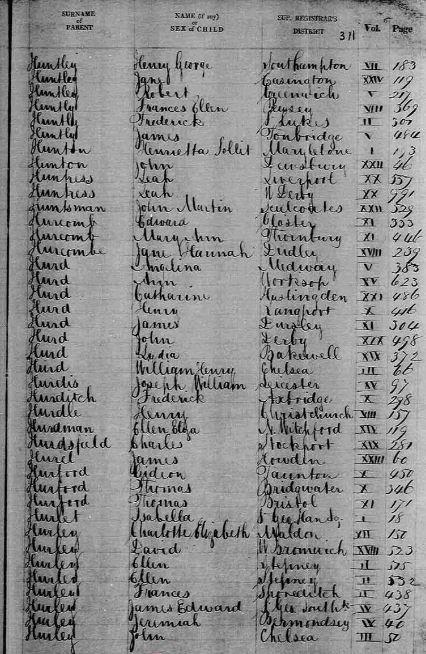 SURNAME OF PARENT NAME (if any) or SEX OF CHILD SUP. REGISTRAR'S DISTRICT 311 Vol. Page
Huntley Henry George Southampton VII 183
Huntley Jane Easington XXIV 119
Huntley Robert Greenwich V 217
Huntly Frances Ellen Pewsey VIII 369
Huntly Frederick St Lukes II 307
Huntly James Tonbridge V 464
Hunton Henrietta Sollit Marylebone I 173
Hunton John Dewsbury XXII 46
Huntress Leah Liverpool XX 557
Huntress Leah W Derby XX 591
Huntsman John Martin Sculcoates XXII 529
Hurcomb Edward Gloster XI 333
Hurcomb Mary Ann Thornbury XI 446
Hurcombe Jane Hannah Dudley XVIII 239
Hurd Medway V 383
Hurd Ann Worksop XV 623
Hurd Catharine Haslingden XXI 486
Hurd Henry Langport X 446
Hurd James Dursley XI 304
Hurd John Derby XIX 498
Hurd Lydia Bakewell XIX 372
Hurd William Henry Chelsea III 66
Hurdis Joseph William Leicester XV 97
Hurditch Frederick Axbridge X 298
Hurdle Henry Christchurch VIII 157
Hurdman Ellen Eliza N. Witchford XIV 119
Hurdsfield Charles Stockport XIX 281
Hurel James Howden XXIII 60
Hurford Gideon Taunton X 450
Hurford Thomas Bridgwater X 346
Hurford Thomas Bristol XI 171
Hurlet Isabella St Geo. Han Sq. I 18
Hurley Charlotte Elizabeth Maldon XII 150
Hurley David W. Bromwich XVIII 523
Hurley Ellen Stepney II 515
Hurley Ellen Stepney II 532
Hurley Frances Shoreditch II 438
Hurley James Edward St Geo. Southk IV 437
Hurley Jeremiah Bermondsey IV 40
Hurley John Chelsea III 50